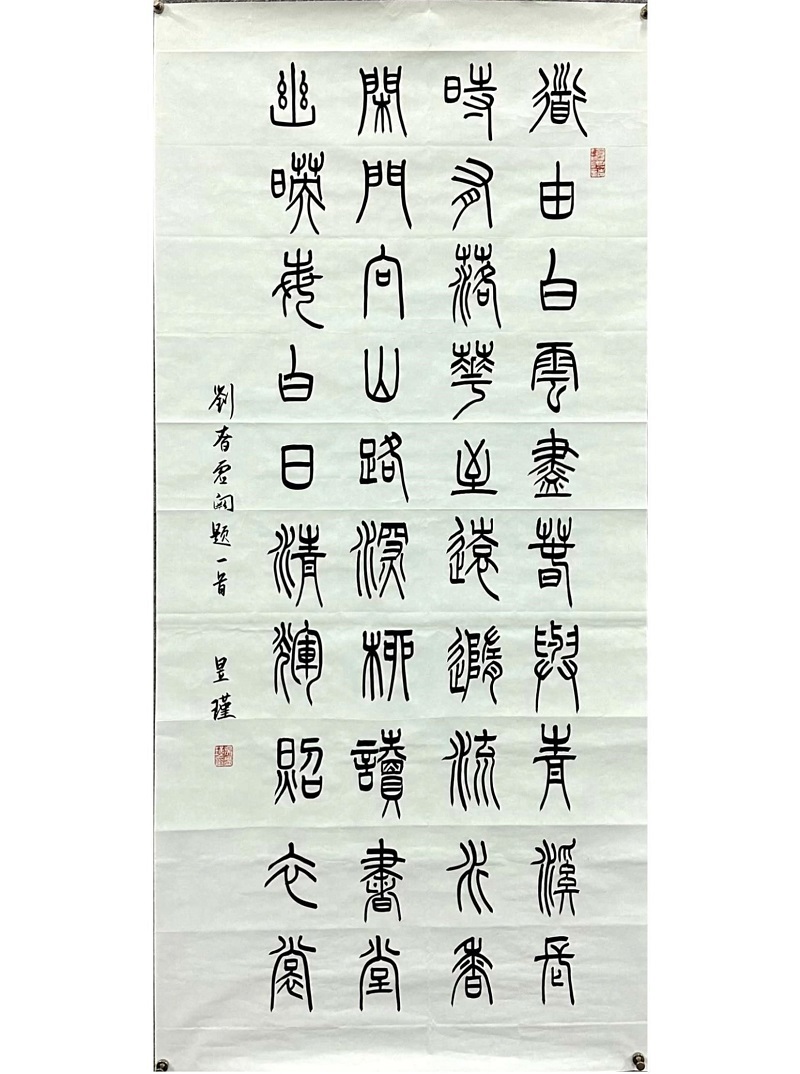 道由白雲盡春與青溪長
時有落華至遠隨流水香
閑門向山路深柳讀書堂
幽暎每白日清輝照衣裳
劉眘虛闕題一首 昱瑾